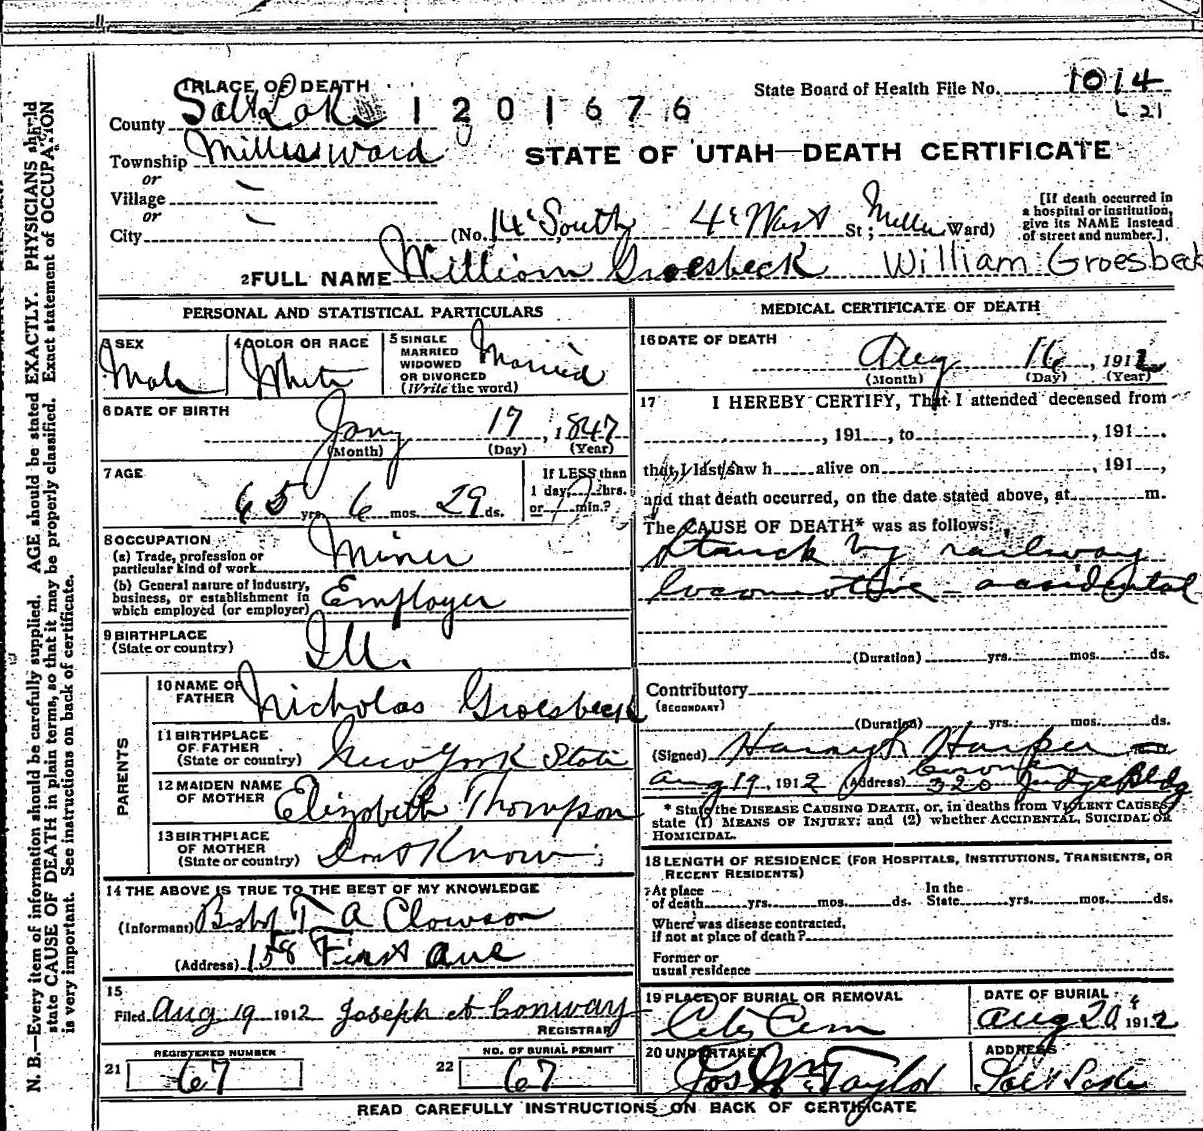 PLACE OF DEATH
State Board of Health File No. 1014
County Salt Lake 1201676
21
Township Millers Ward
STATE OF UTAH—DEATH CERTIFICATE
or
Village
or
City (No. 14th South 4th West St; Miller Ward)
[If death occurred in
a hospital or institution,
give its NAME instead
of street and number.]
2 FULL NAME William Groesbeck William Groesbeck
PERSONAL AND STATISTICAL PARTICULARS
3 SEX
Male
4 COLOR OR RACE
White
5 SINGLE
MARRIED
WIDOWED
OR DIVORCED
(Write the word)
Married
6 DATE OF BIRTH
Jany 17, 1847
(Month) (Day) (Year)
7 AGE
65 yrs. 6 mos. 29 ds.
If LESS than
1 day, hrs.
or min.?
8 OCCUPATION
(a) Trade, profession or
particular kind of work Miner
(b) General nature of industry,
business, or establishment in
which employed (or employer) Employer
9 BIRTHPLACE
(State or country) Ill.
PARENTS
10 NAME OF
FATHER Nicholas Groesbeck
11 BIRTHPLACE
OF FATHER
(State or country) New York State
12 MAIDEN NAME
OF MOTHER Elizabeth Thompson
13 BIRTHPLACE
OF MOTHER
(State or country) Dont Know
14 THE ABOVE IS TRUE TO THE BEST OF MY KNOWLEDGE
(Informant) T A Clowson
(Address) 158 First Ave
15
Filed Aug 19 1912 Joseph Conway
REGISTRAR
21 REGISTERED NUMBER
67
22 NO. OF BURIAL PERMIT
67
MEDICAL CERTIFICATE OF DEATH
16 DATE OF DEATH
Aug 16, 1912
(Month) (Day) (Year)
17 I HEREBY CERTIFY, That I attended deceased from
, 191 , to , 191 .
that I last saw h alive on , 191 ,
and that death occurred, on the date stated above, at m.
The CAUSE OF DEATH* was as follows:
Struck by railway
locomotive - accidental
(Duration) yrs. mos. ds.
Contributory
(SECONDARY)
(Duration) yrs. mos. ds.
(Signed) Harry Harper
Coroner
Aug 19, 1912 (Address) 320 Judge Bldg
* State the DISEASE CAUSING DEATH, or, in deaths from VIOLENT CAUSES,
state (1) MEANS OF INJURY; and (2) whether ACCIDENTAL, SUICIDAL OR
HOMICIDAL.
18 LENGTH OF RESIDENCE (FOR HOSPITALS, INSTITUTIONS, TRANSIENTS, OR
RECENT RESIDENTS)
At place
of death yrs. mos. ds.
In the
State yrs. mos. ds.
Where was disease contracted,
if not at place of death?
Former or
usual residence
19 PLACE OF BURIAL OR REMOVAL
City Cem
DATE OF BURIAL
Aug 20, 1912
20 UNDERTAKER
Jos Wm Taylor
ADDRESS
Salt Lake
READ CAREFULLY INSTRUCTIONS ON BACK OF CERTIFICATE
N. B.—Every item of information should be carefully supplied. AGE should be stated EXACTLY. PHYSICIANS should
state CAUSE OF DEATH in plain terms, so that it may be properly classified. Exact statement of OCCUPATION
is very important. See instructions on back of certificate.